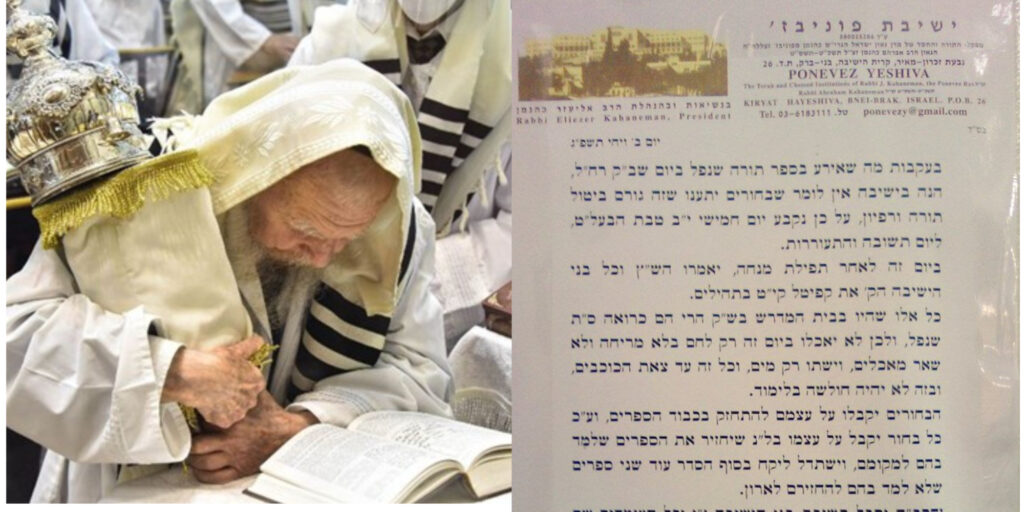 ישיבת פוניבז'
ע"ר 580025286
נבעת זכרון-מאיר, קרית הישיבה, בני-ברק, ת.ד. 26
PONEVEZ YESHIVA
The Torah and Chessed Institutions of Rabbi J. Kahaneman, the Ponevez Rav
Rabbi Abraham Kahaneman
KIRYAT HAYESHIVA, BNEI-BRAK, ISRAEL, P.O.B. 26
Tel. 03-6183111 .טל ponevezy@gmail.com
בנשיאות ובהנהלת הרב אליעזר כהנמן
Rabbi Eliezer Kahaneman, President
בס"ד
יום ב' ויחי תשפ"ג
בעקבות מה שאירע בספר תורה שנפל ביום שב"ק רח"ל,
הנה בישיבה אין לומר שבחורים יתענו שזה גורם ביטול
תורה ורפיון, על כן נקבע יום חמישי י"ב טבת הבעל"ט,
ליום תשובה והתעוררות.
ביום זה לאחר תפילת מנחה, יאמרו הש"ץ וכל בני
הישיבה הק' את קפיטל קי"ט בתהילים.
כל אלו שהיו בבית המדרש בש"ק הרי הם כרואה ס"ת
שנפל, ולכן לא יאכלו ביום זה רק לחם בלא מריחה ולא
שאר מאכלים, וישתו רק מים, וכל זה עד צאת הכוכבים,
ובזה לא יהיה חולשה בלימוד.
הבחורים יקבלו על עצמם להתחזק בכבוד הספרים, ועי"כ
כל בחור יקבל על עצמו בל"נ שיחזיר את הספרים שלמד
בהם למקומם, וישתדל ליקח בסוף הסדר עוד שני ספרים
שלא למד בהם להחזירם לארון.